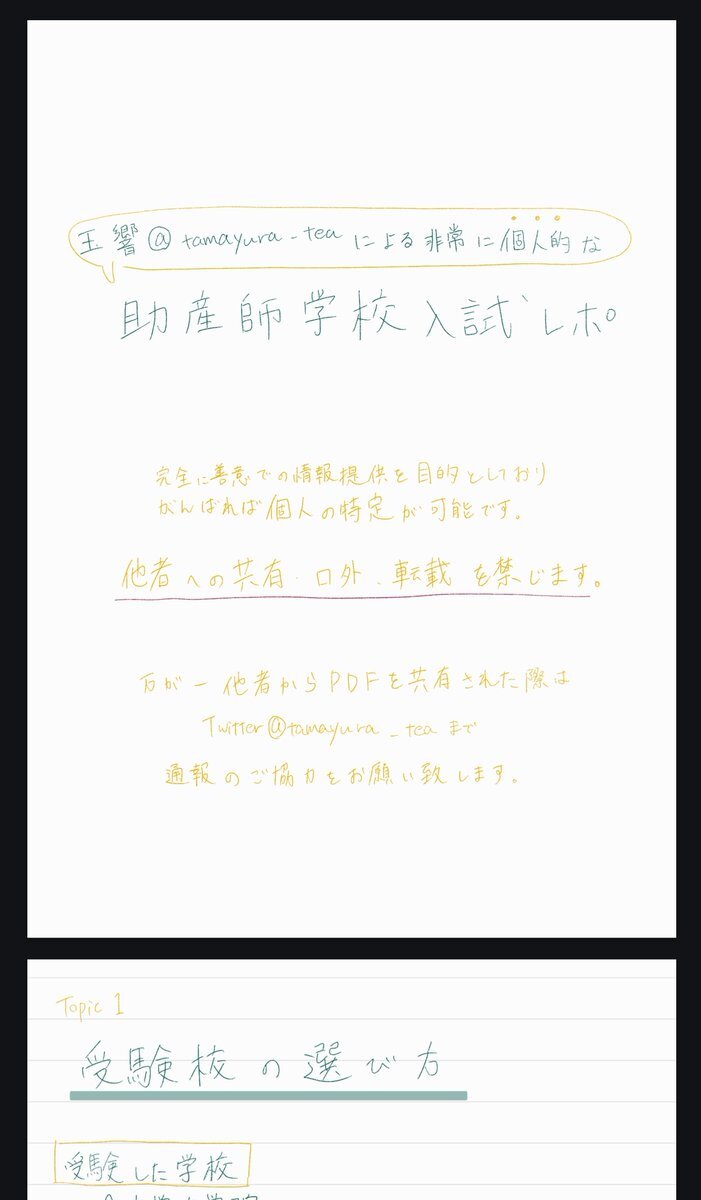 玉響@tamayura_teaによる非常に個人的な
助産師学校入試レポ
完全に善意での情報提供を目的としており
がんばれば個人の特定が可能です。
他者への共有・口外・転載を禁じます。
万が一他者からPDFを共有された際は
Twitter@tamayura_teaまで
通報のご協力をお願い致します。
Topic 1
受験校の選び方
受験した学校